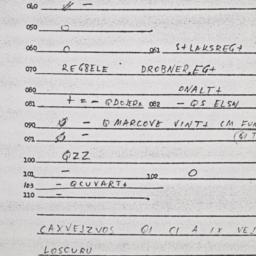 040 –
050 O
060 O 061 S+LAKSREG+
070 REGBELE DROBNER,EG+
080 ONALT+
081 + = – QDOJERA 082 – QS ELSN
090 Ø – Q MARCOVE VINT+ CM FUN
091 Ø –
100 QZZ
101 – 102 O
103 – QCUVART+
110 –
CAXVEJZVOS QI CI A IX VEJ
LOSCURU